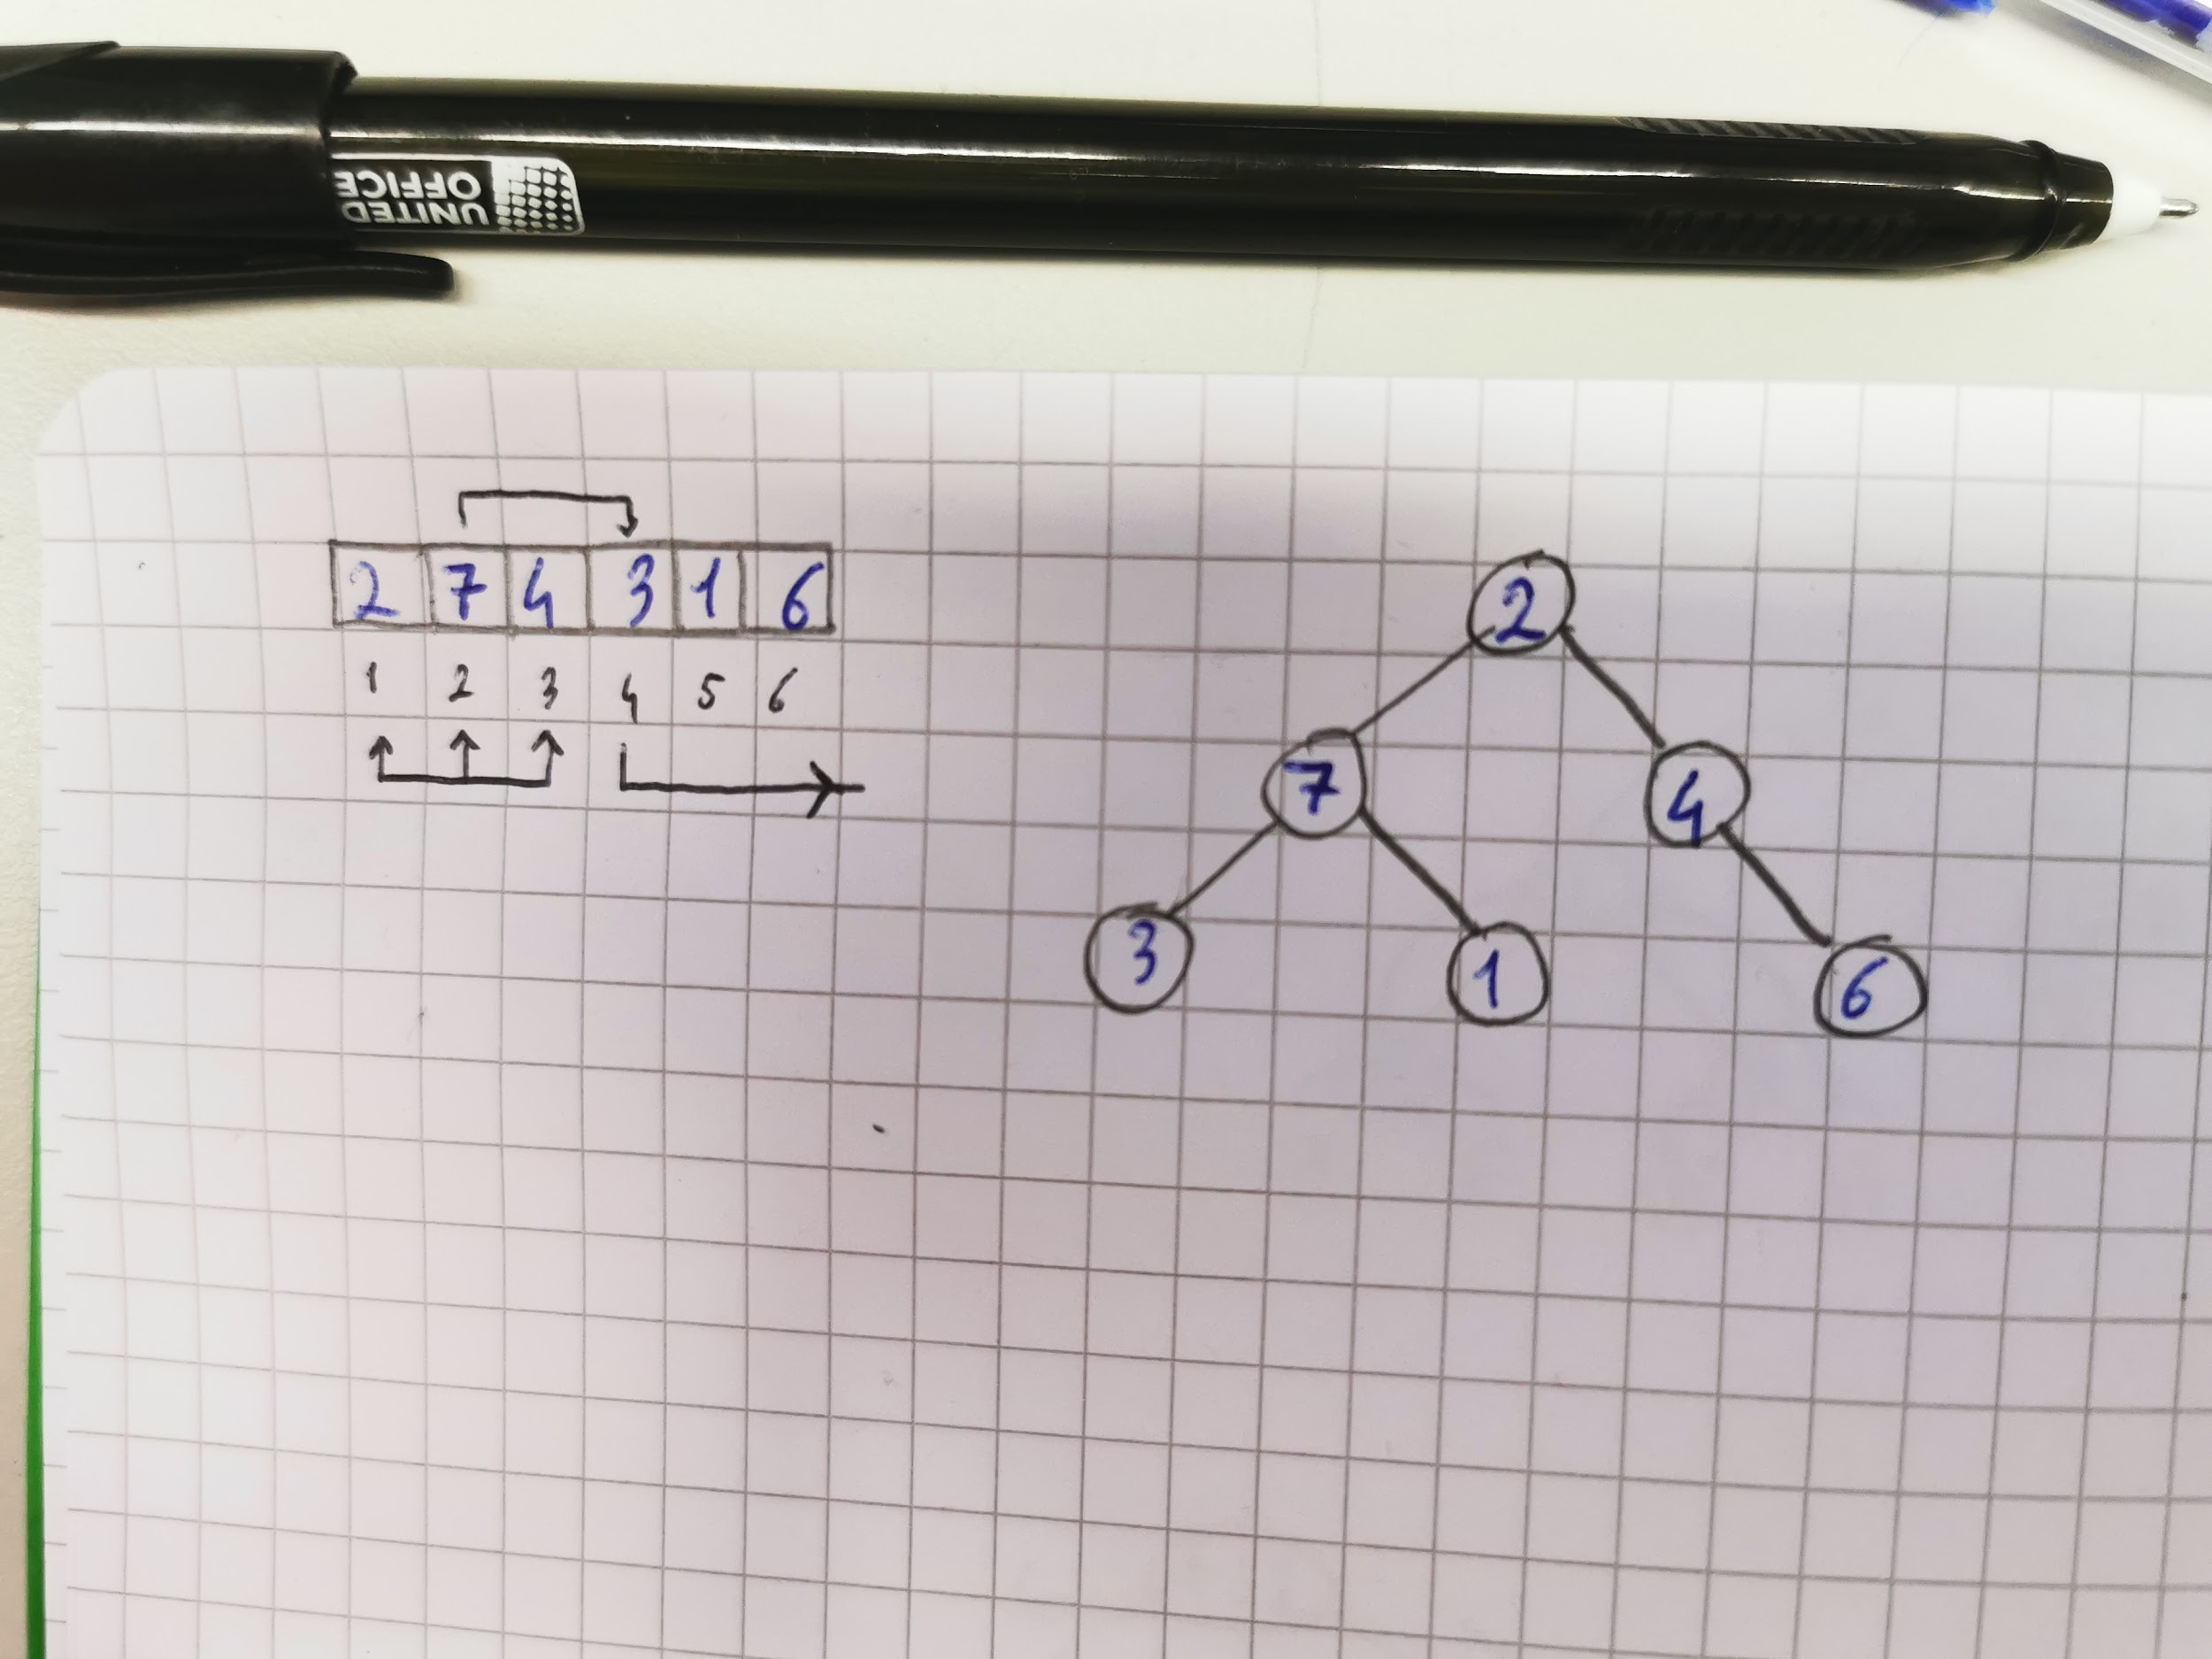 UNITED
OFFICE
2 7 4 3 1 6
1 2 3 4 5 6
2
7 4
3 1 6